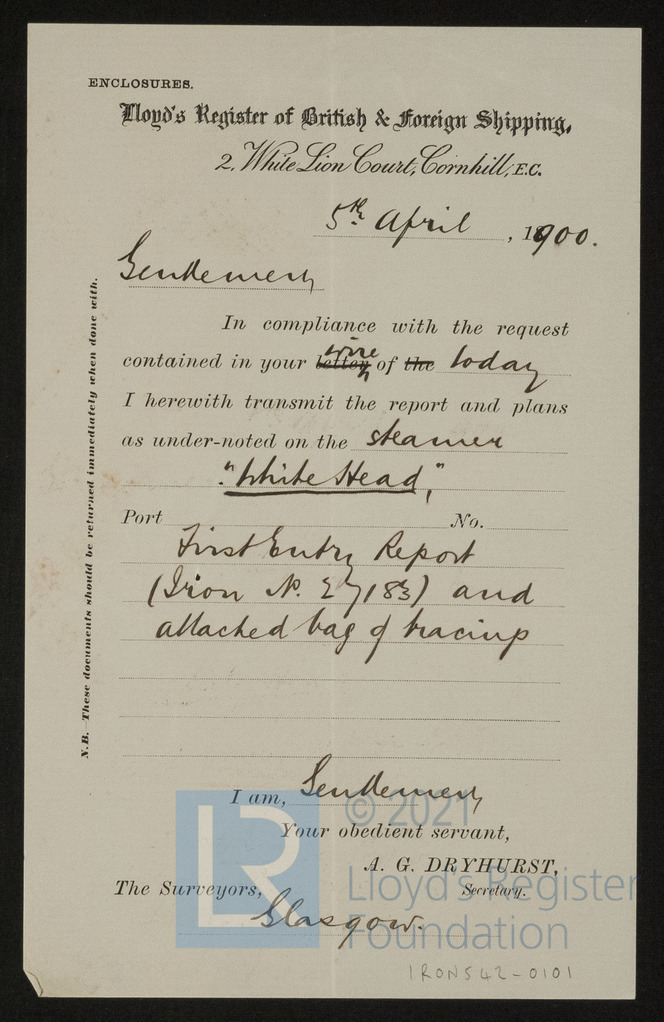 ENCLOSURES.
Lloyd's Register of British & Foreign Shipping,
2, White Lion Court, Cornhill, E.C.
5th April, 1900.
Gentlemen
In compliance with the request
contained in your letter wire of the today
I herewith transmit the report and plans
as under-noted on the steamer
"White Head",
Port No.
First Entry Report
(Iron No. 27183) and
attached bag of tracings
I am, Gentlemen
Your obedient servant,
A. G. DRYHURST,
Secretary.
The Surveyors,
Glasgow.
N.B. These documents should be returned immediately when done with.
LR
© 2021
Lloyd's Register
Foundation
IRON542-0101